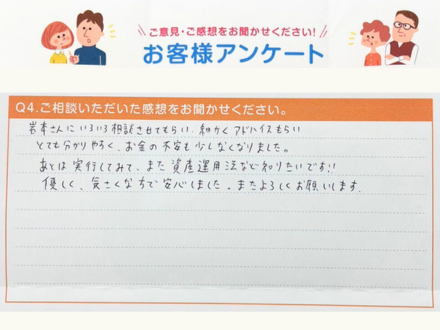 ご意見・ご感想をお聞かせください!
お客様アンケート
Q4.ご相談いただいた感想をお聞かせください。
岩本さんにいろいろ相談させてもらい、細かくアドバイスもらい
とても分かりやすく、お金の不安も少しなくなりました。
あとは実行してみて、また資産運用法など知りたいです!!
優しく、気さくな方で安心しました。またよろしくお願いします。